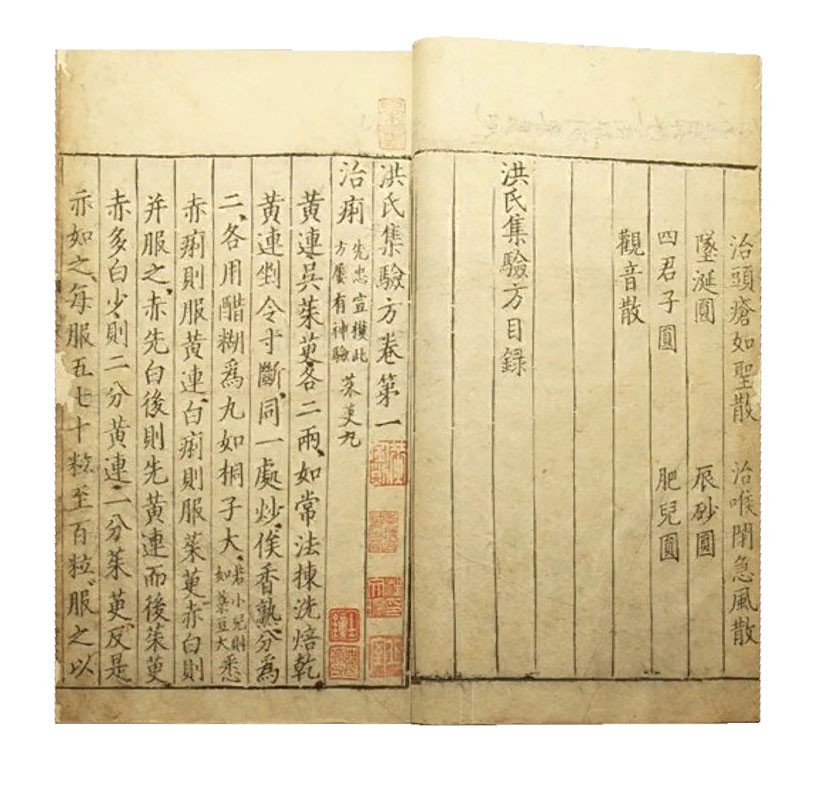 治頭瘡如聖散 治喉閉急風散
墜涎圓 辰砂圓
四君子圓 肥兒圓
觀音散
洪氏集驗方目録
洪氏集驗方卷第一
治痢 先忠宣獲此方屢有神驗 茱萸丸
黃連吳茱萸各二兩如常法揀洗焙乾
黃連剉令寸斷同一處炒俟香熟分爲
二各用醋糊爲丸如桐子大若小兒則如菉豆大悉
赤痢則服黃連白痢則服茱萸赤白則
并服之赤先白後則先黃連而後茱萸
赤多白少則二分黃連一分茱萸反是
亦如之每服五七十粒至百粒服之以